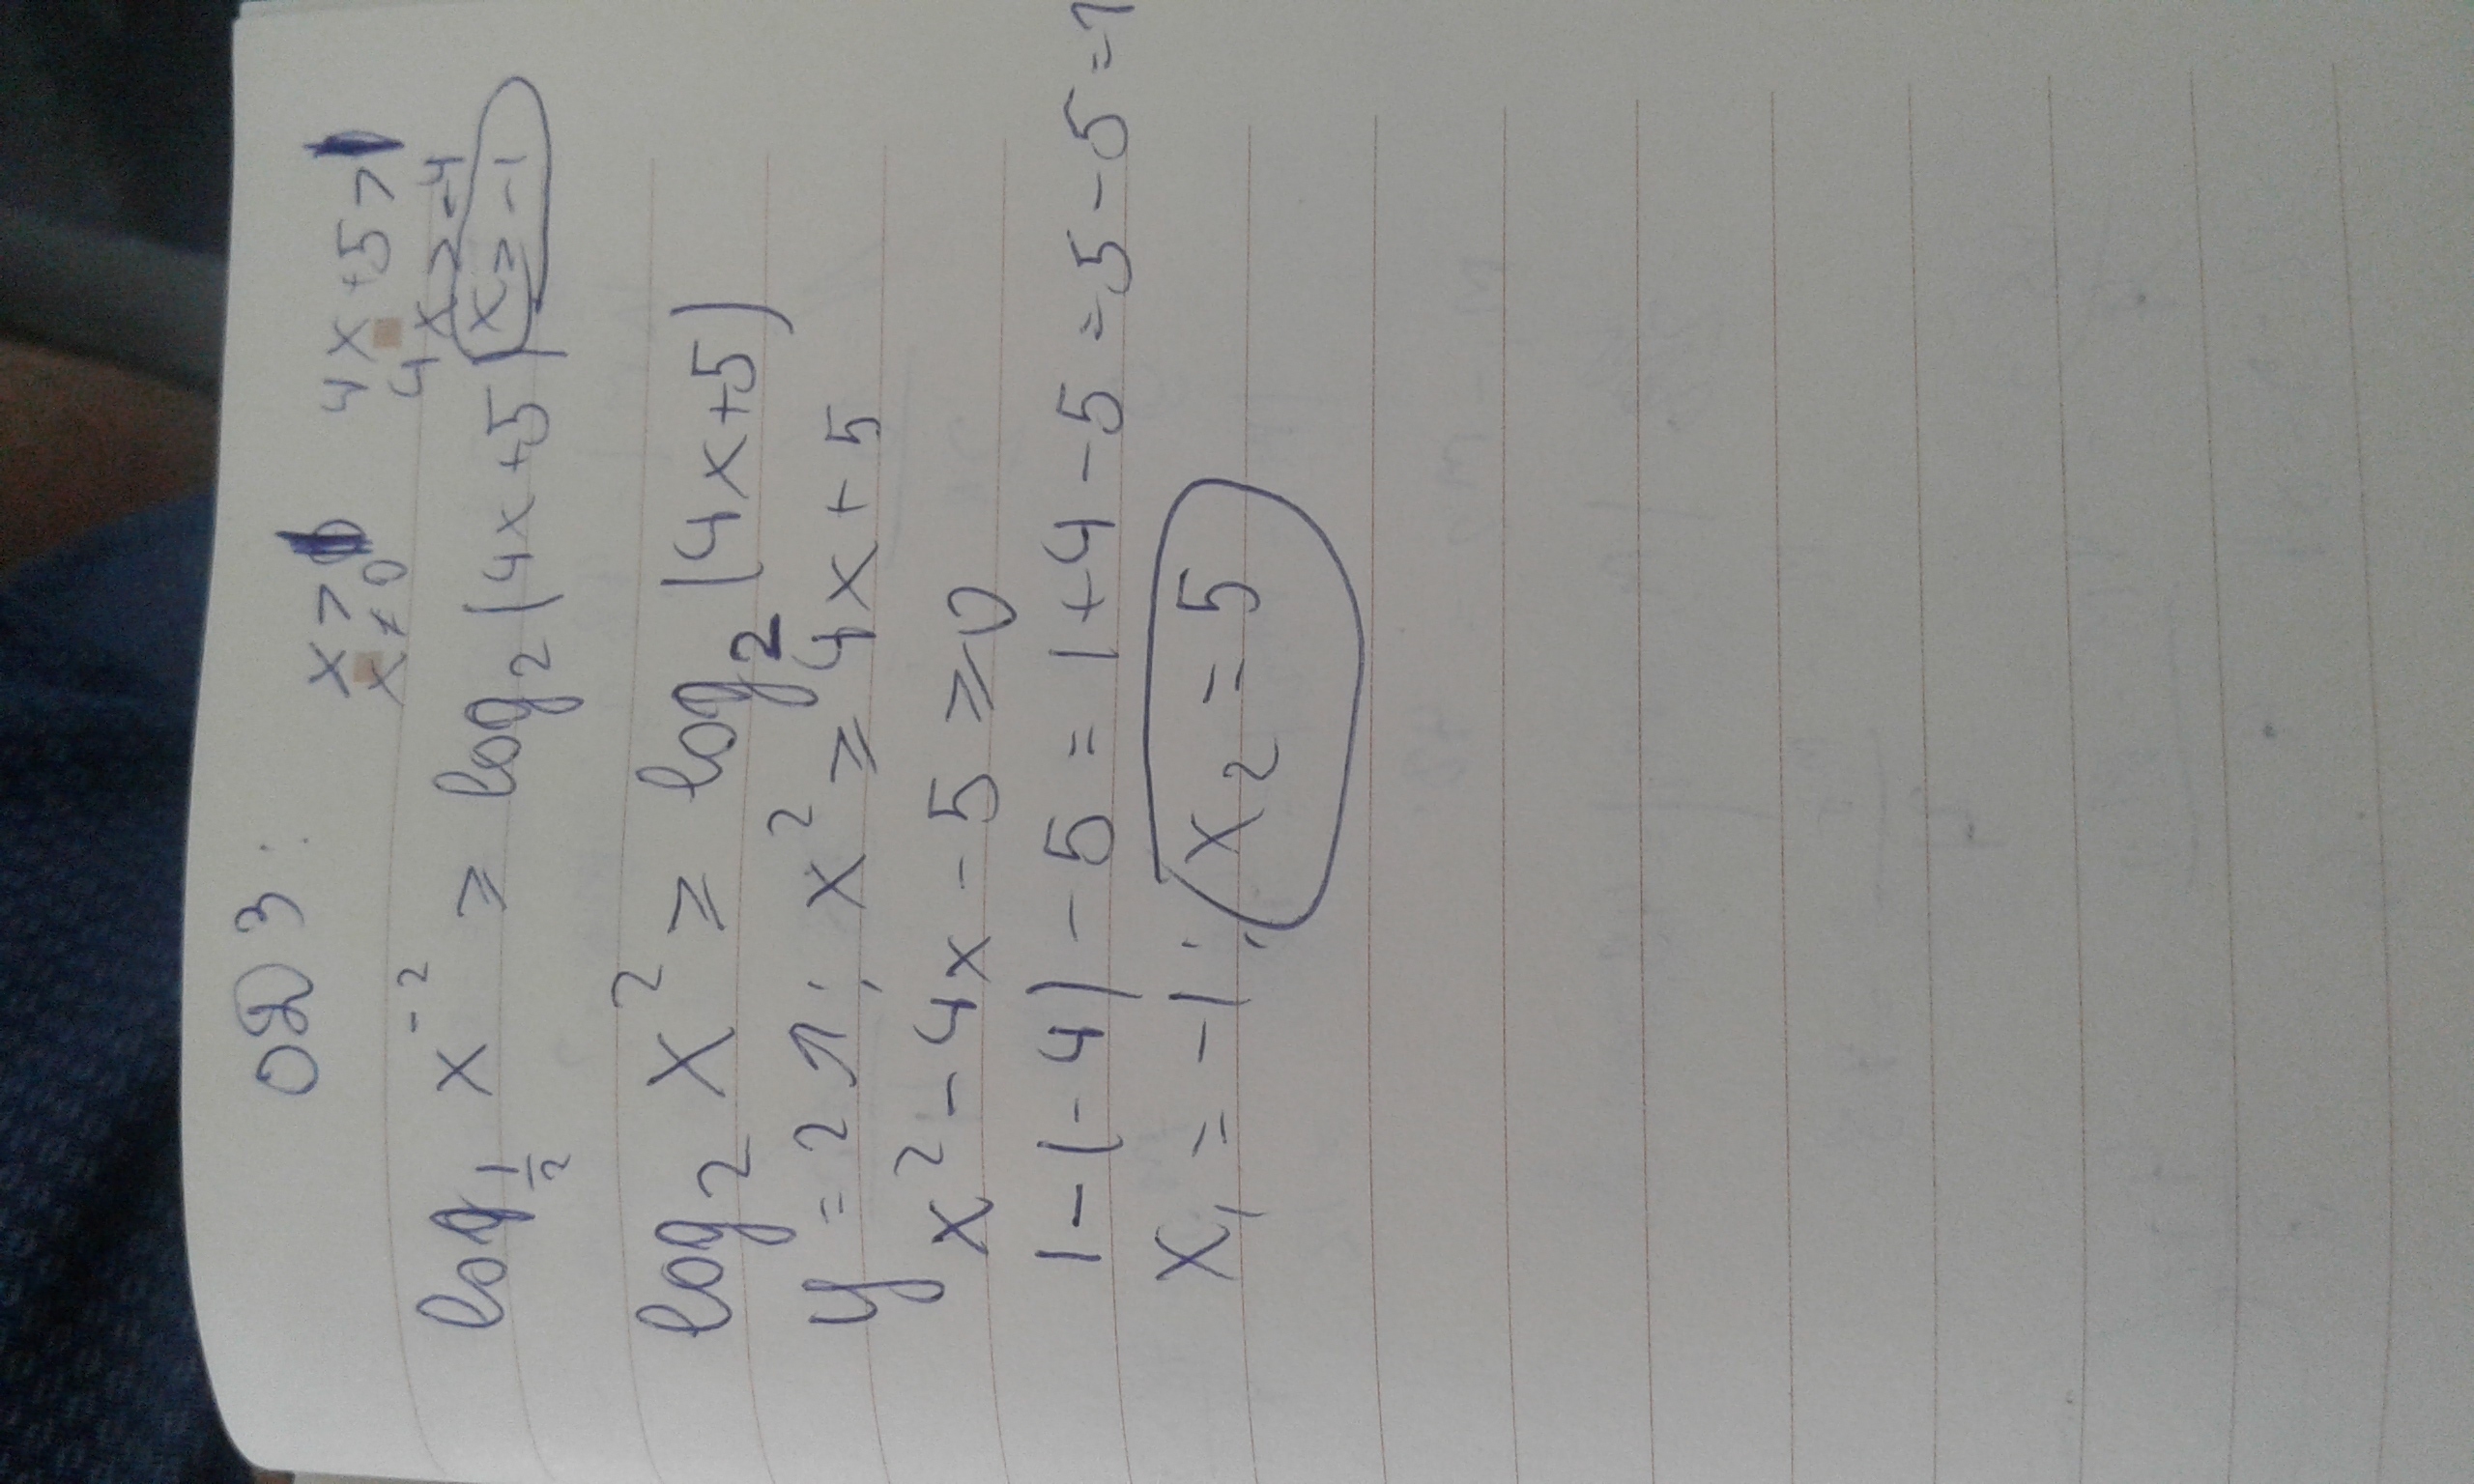 ОДЗ: x > 0 4x + 5 > 1
x ≠ 0 4x > -4
log_{1/2} x^{-2} ≥ log_2 (4x+5) x > -1
log_2 x^2 ≥ log_2 (4x+5)
y = 2 ↗; x^2 ≥ 4x + 5
x^2 - 4x - 5 ≥ 0
1 - (-4) - 5 = 1 + 4 - 5 = 5 - 5 =
x_1 = -1; x_2 = 5